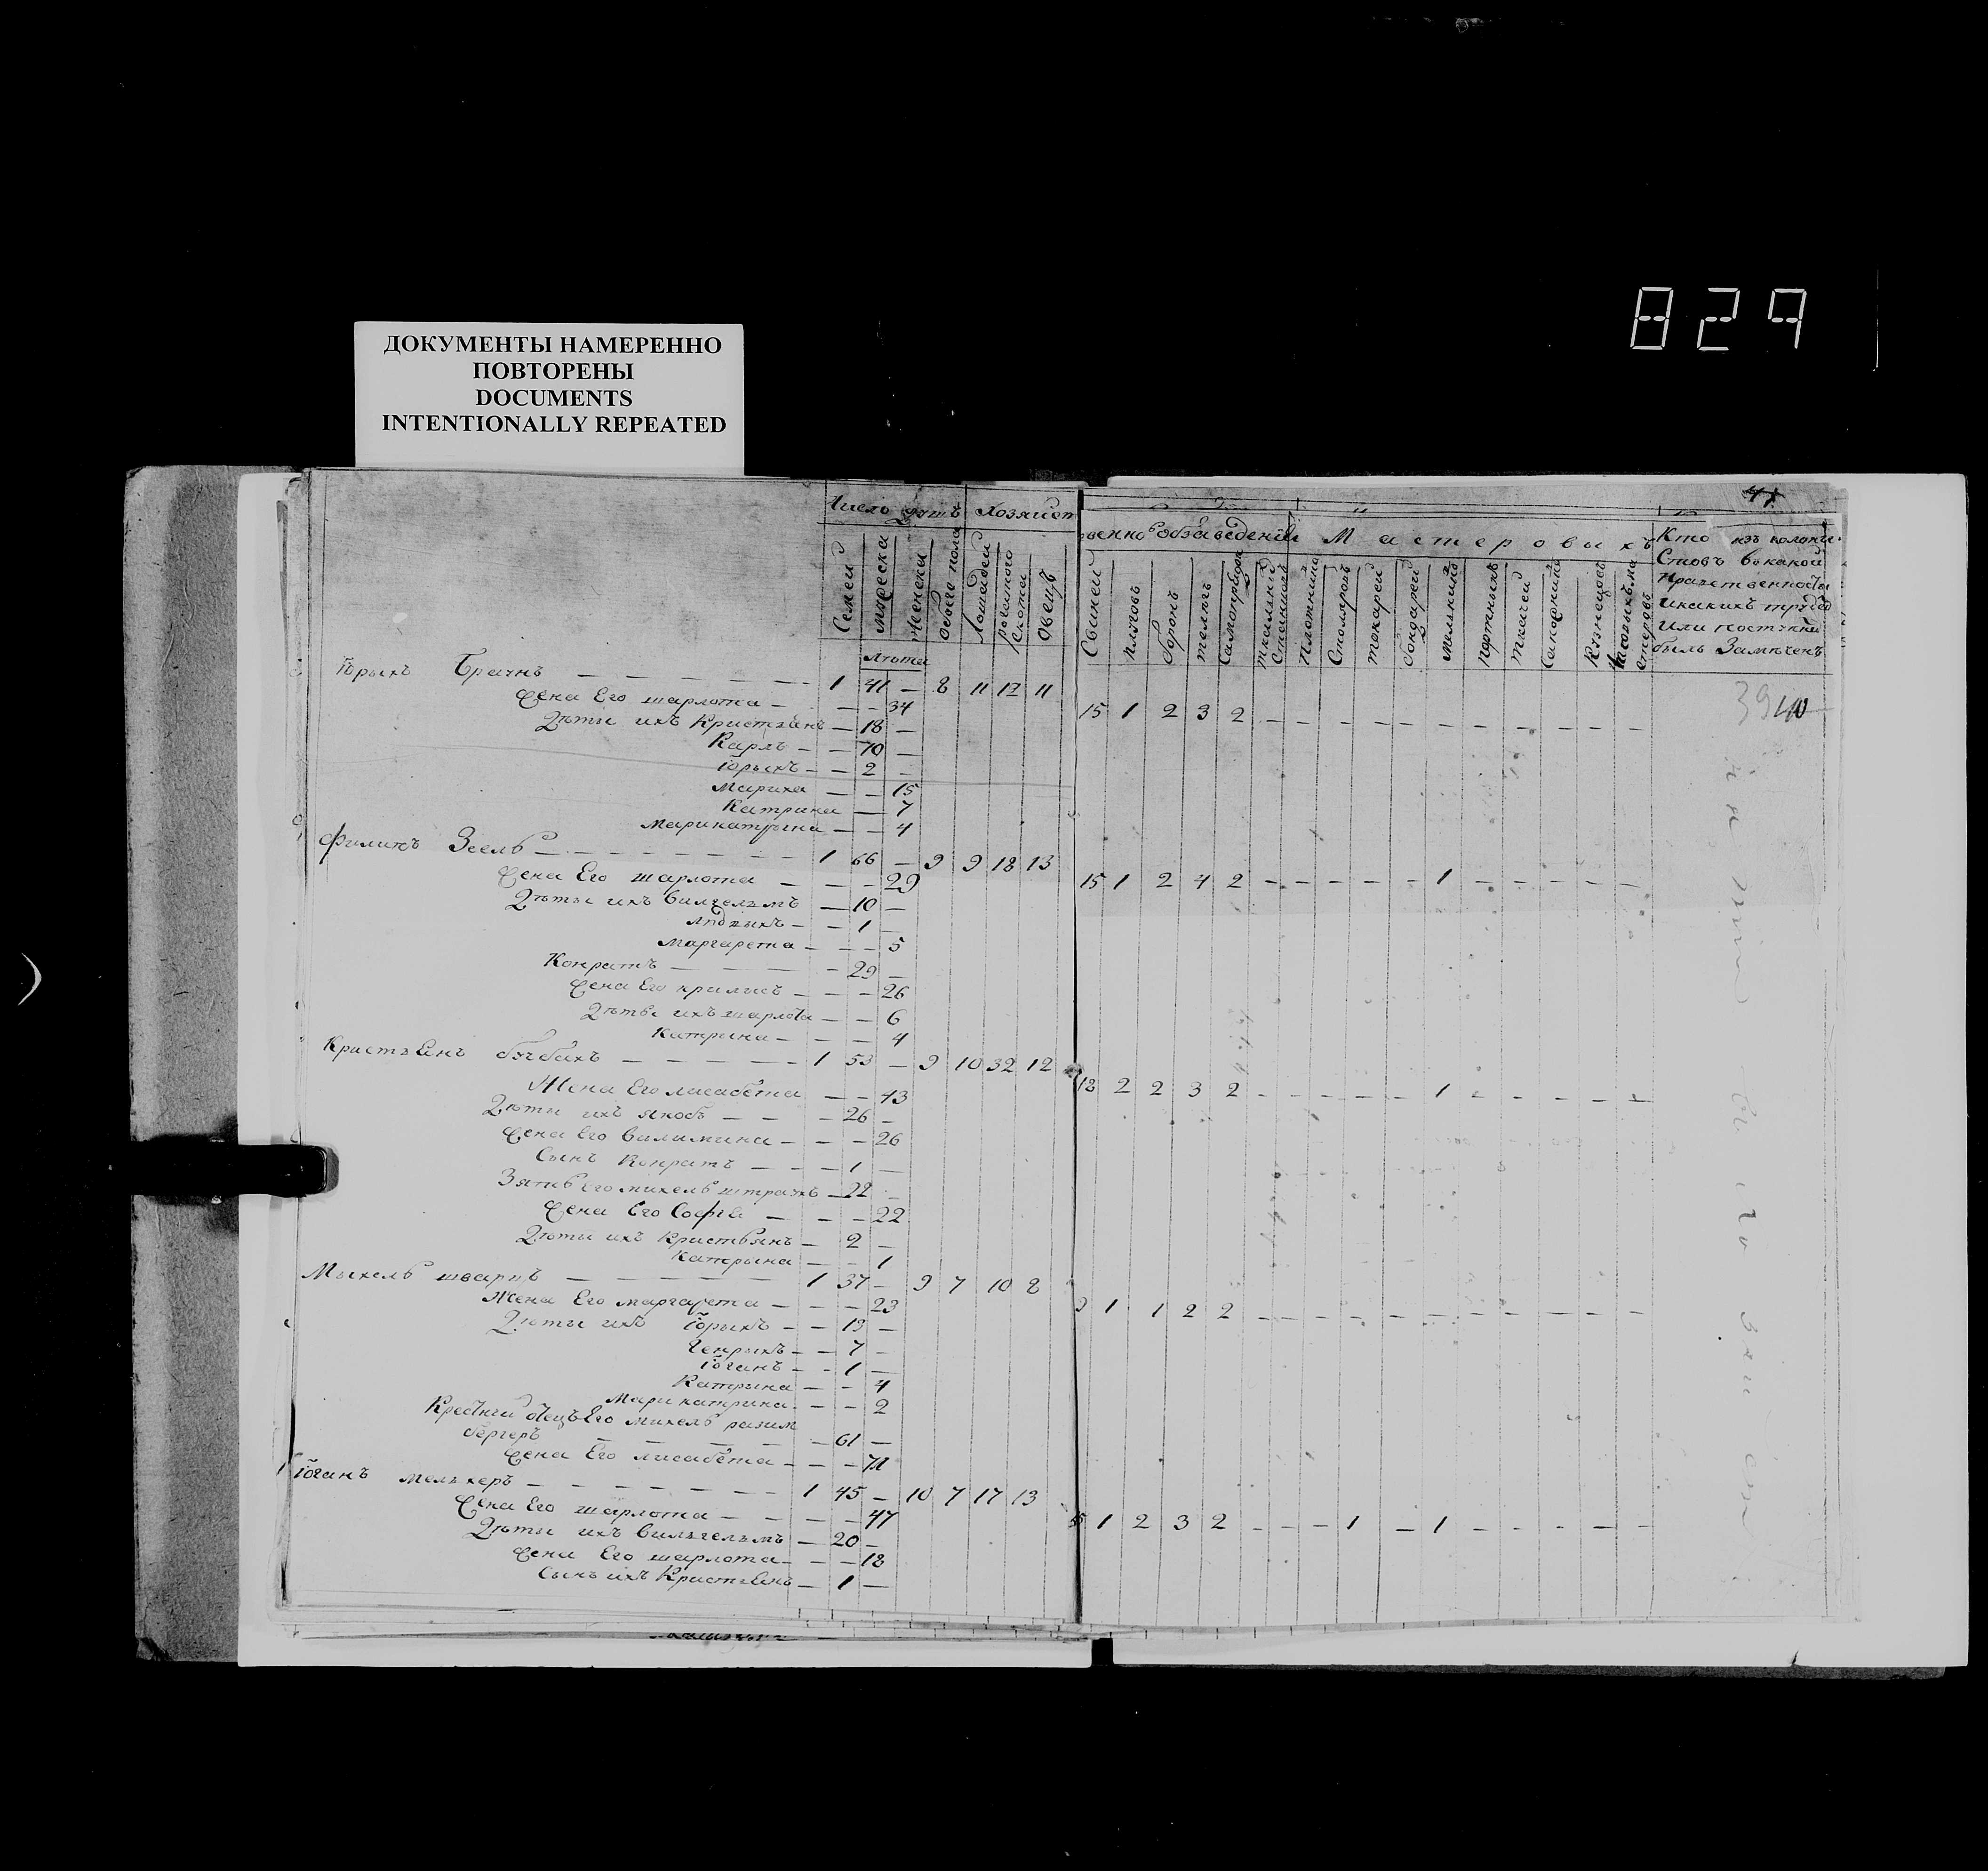 829
ДОКУМЕНТЫ НАМЕРЕННО
ПОВТОРЕНЫ
DOCUMENTS
INTENTIONALLY REPEATED
Число душъ Хозяйст
венно обзаведенiи Мастеровыхъ
Семей
мужеска
женска
обоего пола
Лошадей
рогатого скота
овецъ
Свиней
плуговъ
боронъ
телегъ
Самопрядок
ткальныхъ станковъ
Плотниковъ
Столяровъ
токарей
бондарей
мельниковъ
портныхъ
ткачей
Сапожниковъ
Кузнецовъ
Кто изъ колони
стовъ в какой
нравственности
и какихъ трудов
или поступки
былъ Замеченъ
Лета
39 40
Юрыхъ — 1 41 — 8 11 12 11 15 1 2 3 2
Жена Его шарлота — 34
Дети ихъ Кристъянъ — 18
Карлъ — 10
Юрыхъ — 2
Мариха — 15
Катрина — 7
Марикатрына — 4
Филипъ Зеель — 1 66 — 9 9 18 13 15 1 2 4 2 1
Жена Его шарлота — 29
Дети ихъ Вилгельмъ — 10
— 1
Маргарета — 5
Конратъ — 29
Жена Его — 26
Дети ихъ шарлота — 6
Катрина — 4
Кристъянъ — 1 53 — 9 10 32 12 18 2 2 3 2 1
Жена Его лисабета — 43
Дети ихъ якобъ — 26
Жена Его вилимина — 26
Сынъ Конратъ — 1
Зять Его михель — 22
Жена Его Софiа — 22
Дети ихъ Кристьянъ — 2
Катерына — 1
Михель шварцъ — 1 37 — 9 7 10 8 9 1 1 2 2
Жена Его маргарета — 23
Дети ихъ Юрыхъ — 13
Генрыхъ — 7
Iоганъ — 1
Катрына — 4
Марикатрина — 2
Крестный отецъ Его михель разим
бергеръ — 61
Жена Его лисабета — 71
Iоганъ мельхеръ — 1 45 — 10 7 17 13 15 1 2 3 2 1 1
Жена Его шарлота — 47
Дети ихъ Вильгельмъ — 20
Жена Его шарлота — 18
Сынъ ихъ Кристъянъ — 1